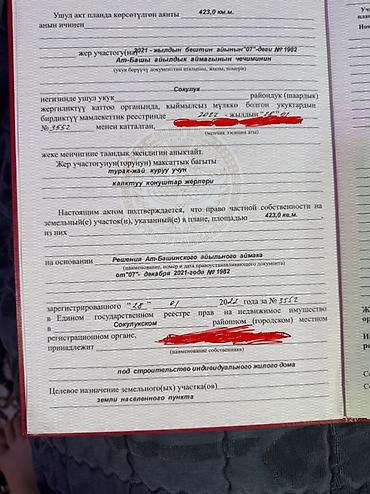 Ушул акт планда көрсөтүлгөн аянты 423,0 кв.м.
анын ичинен
жер участогу(на) 2021 - жылдын бештин айынын "07"-деги № 1982
Ат-Башы айылдык аймагынын чечиминин
(укук берүүчү документтин аталышы, жылы, номери)
Сокулук
негизинде ушул укук райондук (шаардык)
жергиликтүү каттоо органында, кыймылсыз мүлккө болгон укуктардын
бирдиктүү мамлекеттик реестринде 2022 - жылдын "28" 01
№ 3552 менен катталган,
(менчик ээсинин аты)
жеке менчигине таандык экендигин аныктайт.
Жер участогунун(торунун) максаттык багыты
турак-жай куруу үчүн
калктуу конуштар жерлери
Настоящим актом подтверждается, что право частной собственности на
земельный(е) участок(и), указанный(е) в плане, площадью 423,0 кв.м.
из них
на основании Решения Ат-Башинского айыльного аймака
(наименование, номер и дата правоустанавливающего документа)
от "07"- декабря 2021-года № 1982
зарегистрированного "28" 01 2022 года за № 3552
в Едином государственном реестре прав на недвижимое имущество
в Сокулукском районном (городском) местном
регистрационном органе,
принадлежит
(наименование собственника)
под строительство индивидуального жилого дома
Целевое назначение земельного(ых) участка(ов)
земли населенного пункта